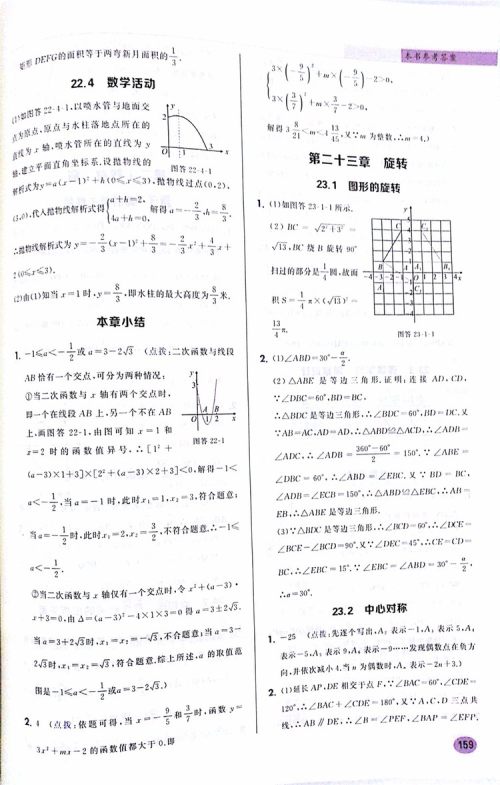 本书参考答案
矩形 DEFG的面积等于两弯新月面积的1/3.
22.4 数学活动
(1)如图答 22-4-1,以喷水管与地面交
点为原点,原点与水柱落地点所在的
直线为 x 轴,喷水管所在的直线为 y
轴,建立平面直角坐标系,设抛物线的
解析式为y=a(x-1)²+h(0≤x≤3),抛物线过点(0,2),
(3,0),代入抛物线解析式得{a+h=2, 4a+h=0, 解得a=-2/3,h=8/3.
∴抛物线解析式为 y=-2/3(x-1)²+8/3=-2/3x²+4/3x+
2(0≤x≤3).
图答 22-4-1
(2)由(1)知当 x=1 时,y=8/3,即水柱的最大高度为8/3米.
本章小结
1. -1≤a<-1/2或 a=3-2√3 (点拨:二次函数与线段
AB 恰有一个交点,可分为两种情况:
①当二次函数与 x 轴有两个交点时,
即一个在线段 AB 上,另一个不在 AB
上,画图答 22-1,由图可知 x=1 和
x=2 时的函数值异号,∴[1²+
图答 22-1
(a-3)×1+3]×[2²+(a-3)×2+3]<0,解得-1<
a<-1/2,当a=-1 时,此时x₁=1,x₂=3,符合题意;
当a=-1/2时,此时x₁=2,x₂=3/2,不符合题意.∴-1≤
a<-1/2.
②当二次函数与 x 轴仅有一个交点时,令 x²+(a-3)·
x+3=0,由Δ=(a-3)²-4×1×3=0 得 a=3±2√3.
当a=3+2√3时,x₁=x₂=-√3,不合题意;当 a=3-
2√3时,x₁=x₂=√3,符合题意.综上所述,a 的取值范
围是-1≤a<-1/2或a=3-2√3.)
2. 4 (点拨:依题可得,当 x=-9/5和3/7时,函数 y=
3x²+mx-2 的函数值都大于 0.即
{3×(-9/5)²+m×(-9/5)-2>0,
3×(3/7)²+m×3/7-2>0,
解得 3 8/21<m<4 13/45,又∵m 为整数,∴m=4.)
第二十三章 旋转
23.1 图形的旋转
1. (1)如图答 23-1-1所示.
(2) BC=√(2²+3²)=
√13,BC 绕 B 旋转 90°
扫过的部分是1/4圆,故面
积 S=1/4π×(√13)²=
13/4π.
图答 23-1-1
2. (1)∠ABD=30°-α/2.
(2) △ABE 是等边三角形.证明:连接 AD,CD,
∵∠DBC=60°,BD=BC,
∴△BDC是等边三角形,∴∠BDC=60°,BD=DC.又
∵AB=AC,AD=AD,∴△ABD≌△ACD,∴∠ADB=
∠ADC,∴∠ADB=(360°-60°)/2=150°.∵∠ABE=
∠DBC=60°,∴∠ABD=∠EBC.又∵BD=BC,
∠ADB=∠ECB=150°,∴△ABD≌△EBC,∴AB=
EB,∴△ABE 是等边三角形.
(3)∵△BDC是等边三角形,∴∠BCD=60°,∴∠DCE=
∠BCE-∠BCD=90°.又∵∠DEC=45°,∴CE=CD=
BC,∴∠EBC=15°.∵∠EBC=∠ABD=30°-α/2,
∴α=30°.
23.2 中心对称
1. -25 (点拨:先逐个写出,A₂ 表示-1,A₃ 表示 5,A₄
表示-5,A₅ 表示9,A₆ 表示-9……发现偶数点在负方
向,并依次减小4.当n 为偶数时,Aₙ 表示-2n+3.)
2. (1)延长 AP,DE 相交于点 F.∵∠BAC=60°,∠CDE=
120°,∴∠BAC+∠CDE=180°,又∵A,C,D 三点共
线,∴AB∥DE,∴∠B=∠PEF,∠BAP=∠EFP.
159